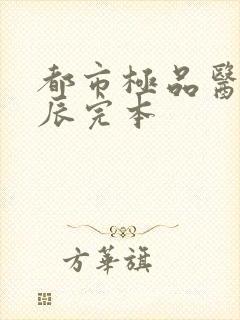 都市極品醫
辰完本
方華旗